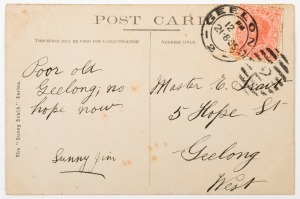 POST CARD
THIS SPACE MAY BE USED FOR COMMUNICATION
ADDRESS ONLY.
GEELONG
12 PM
Poor old
Geelong; no
hope now.
Sunny Jim
Master E.
5 Hope St
Geelong
West
The "Sunny South" Series.